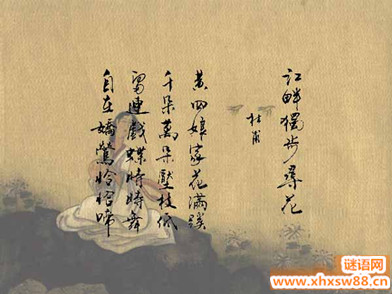 江畔獨步尋花
杜甫
黄四娘家花滿蹊
千朵萬朵壓枝低
留連戲蝶時時舞
自在嬌鶯恰恰啼
谜语网
www.xhxsw88.cn